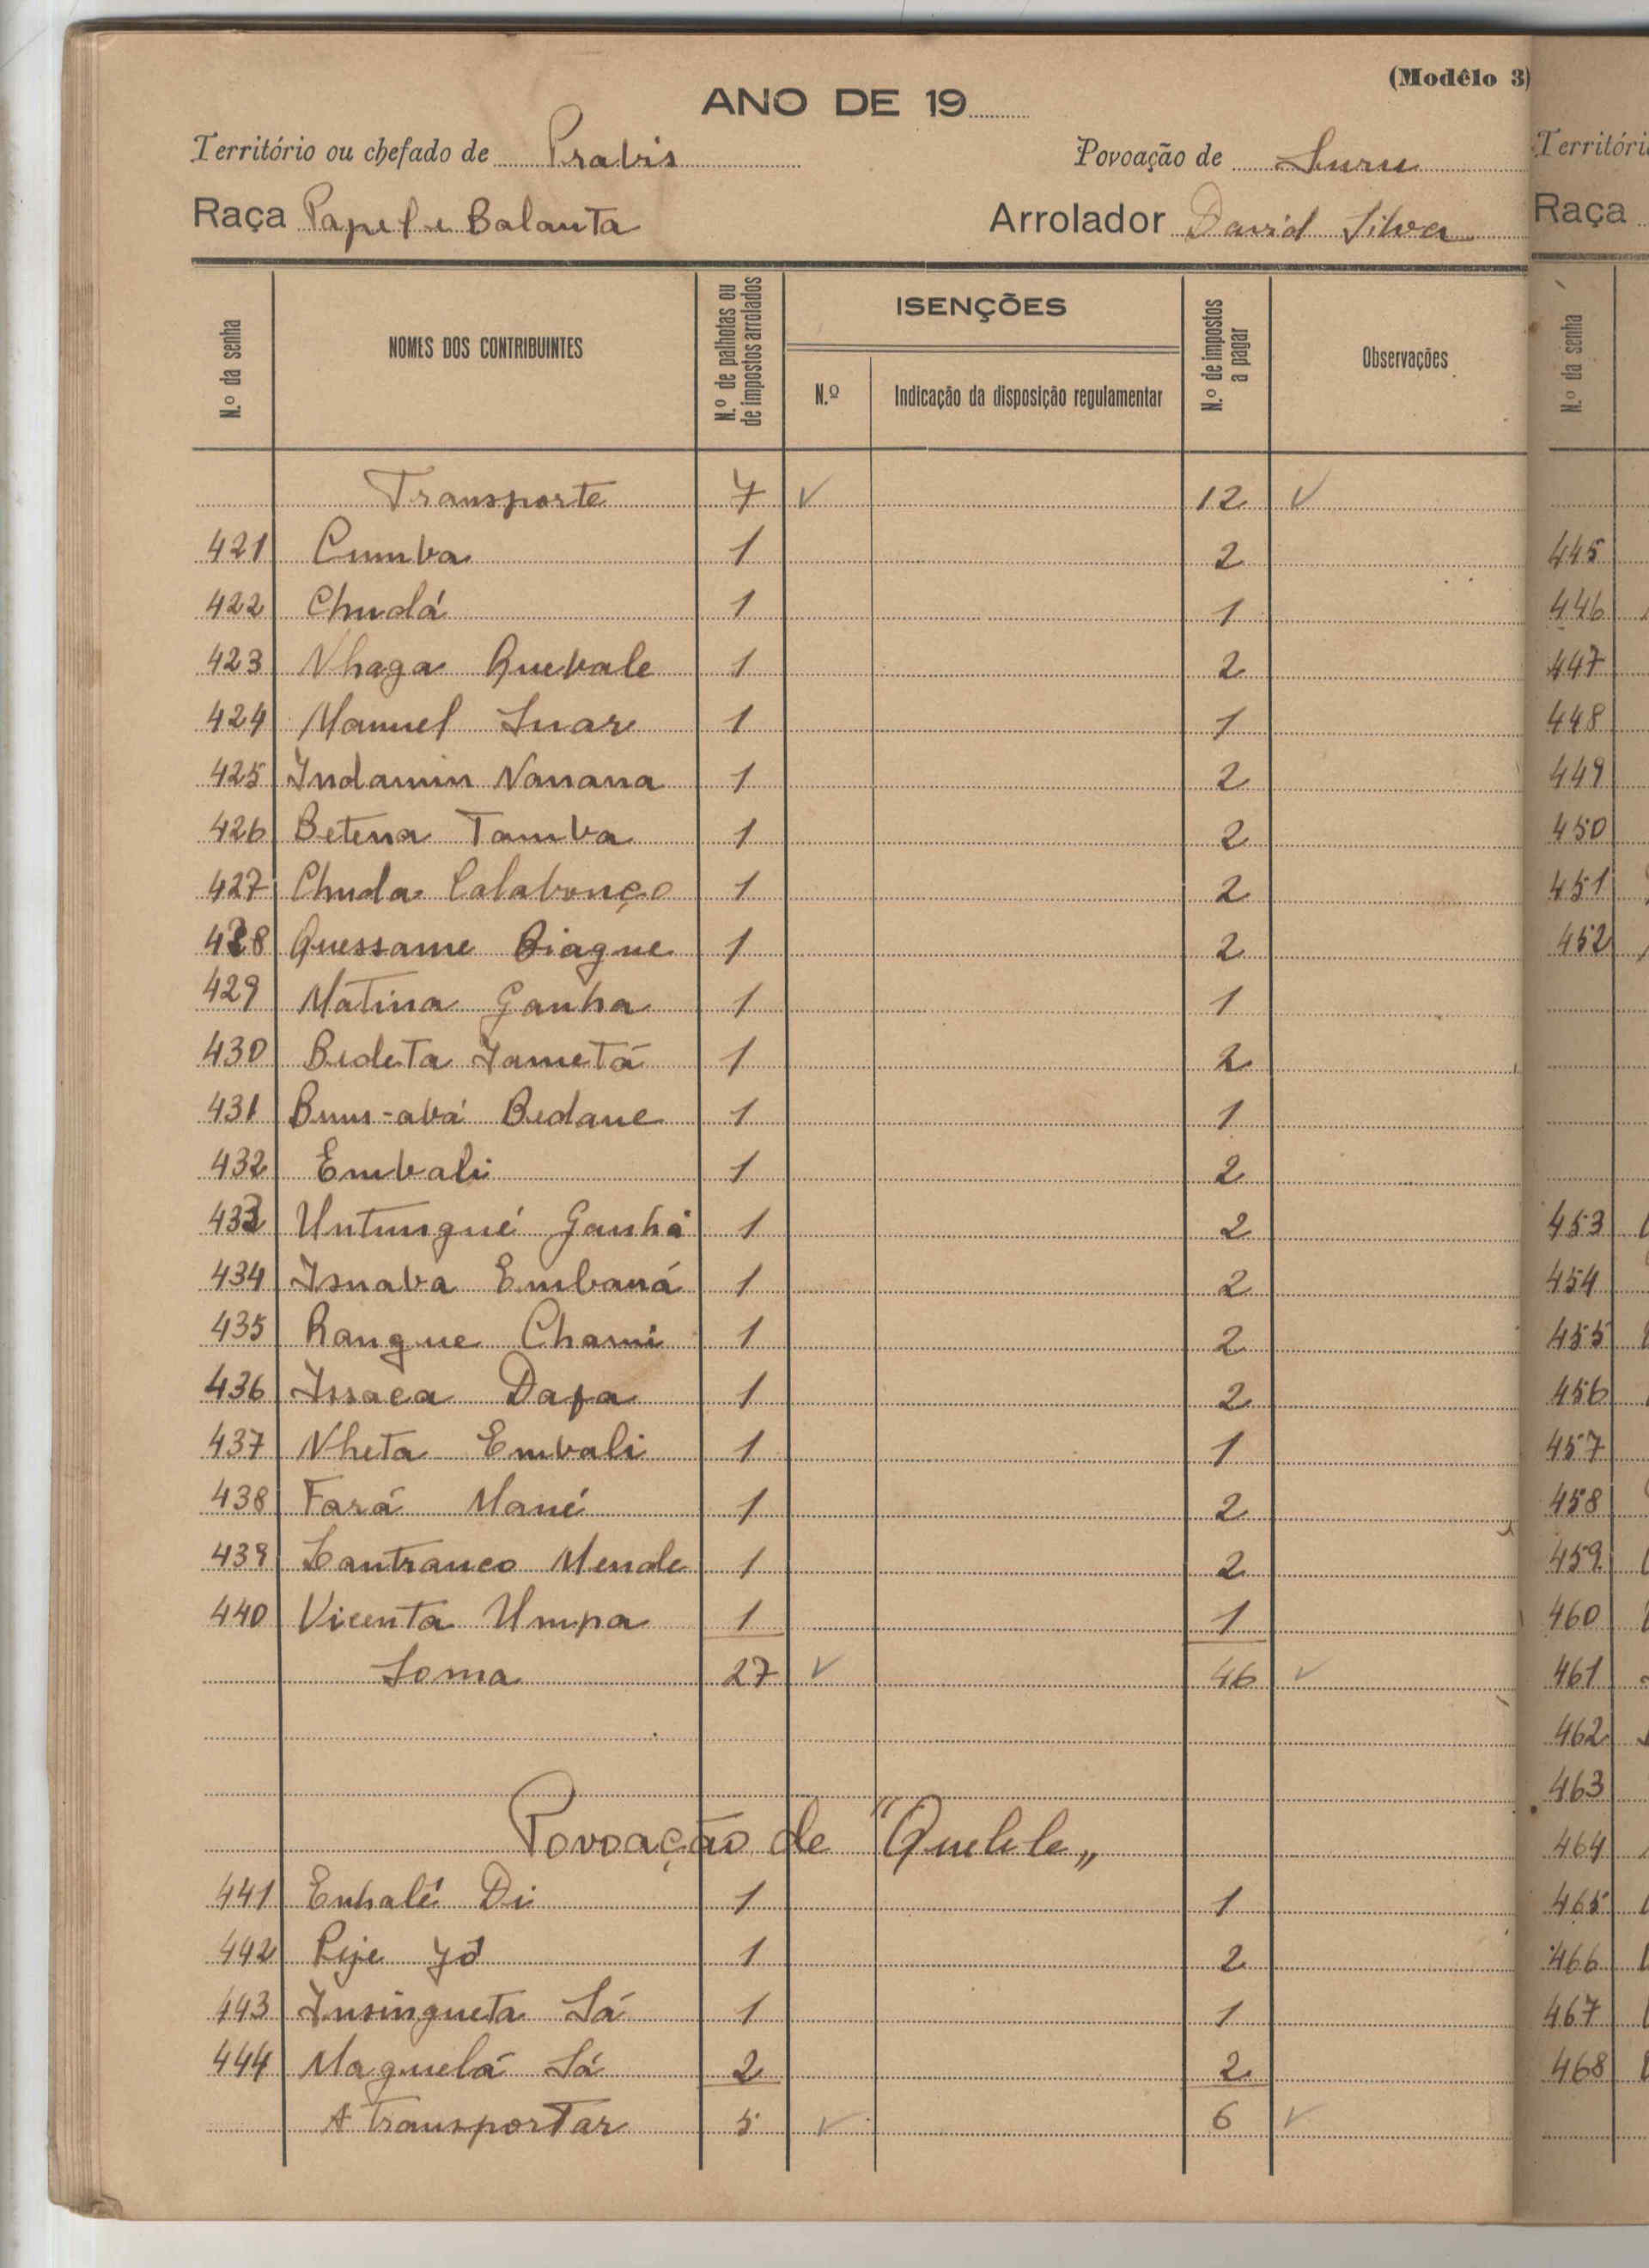 (Modêlo 3)
ANO DE 19
Território ou chefado de Prabis Povoação de Suru
Raça Papel e Balanta Arrolador David Silva
N.º da senha NOMES DOS CONTRIBUINTES N.º de palhotas ou de impostos arrolados ISENÇÕES N.º Indicação da disposição regulamentar N.º de impostos a pagar Observações
Transporte 7 12
421 Cumba 1 2
422 Chudá 1 1
423 Nhaga Quebale 1 2
424 Manuel Suar 1 1
425 Indamin Nanana 1 2
426 Betena Tamba 1 2
427 Chuda Calabonço 1 2
428 Quessame Biague 1 2
429 Matina Ganha 1 1
430 Bideta Iametá 1 2
431 Bum-abá Bidane 1 1
432 Embali 1 2
433 Untungué Ganhá 1 2
434 Isnaba Embaná 1 2
435 Rangue Chami 1 2
436 Issaca Dafa 1 2
437 Nheta Embali 1 1
438 Fará Mané 1 2
439 Lantranco Mende 1 2
440 Vicenta Umpa 1 1
Soma 27 46
Povoação de "Quelele„
441 Enhalé Di 1 1
442 Pije Jó 1 2
443 Insingueta Sá 1 1
444 Maguelá Sá 2 2
A Transportar 5 6
Territóri
Raça
N.º da senha
445
446
447
448
449
450
451
452
453
454
455
456
457
458
459
460
461
462
463
464
465
466
467
468